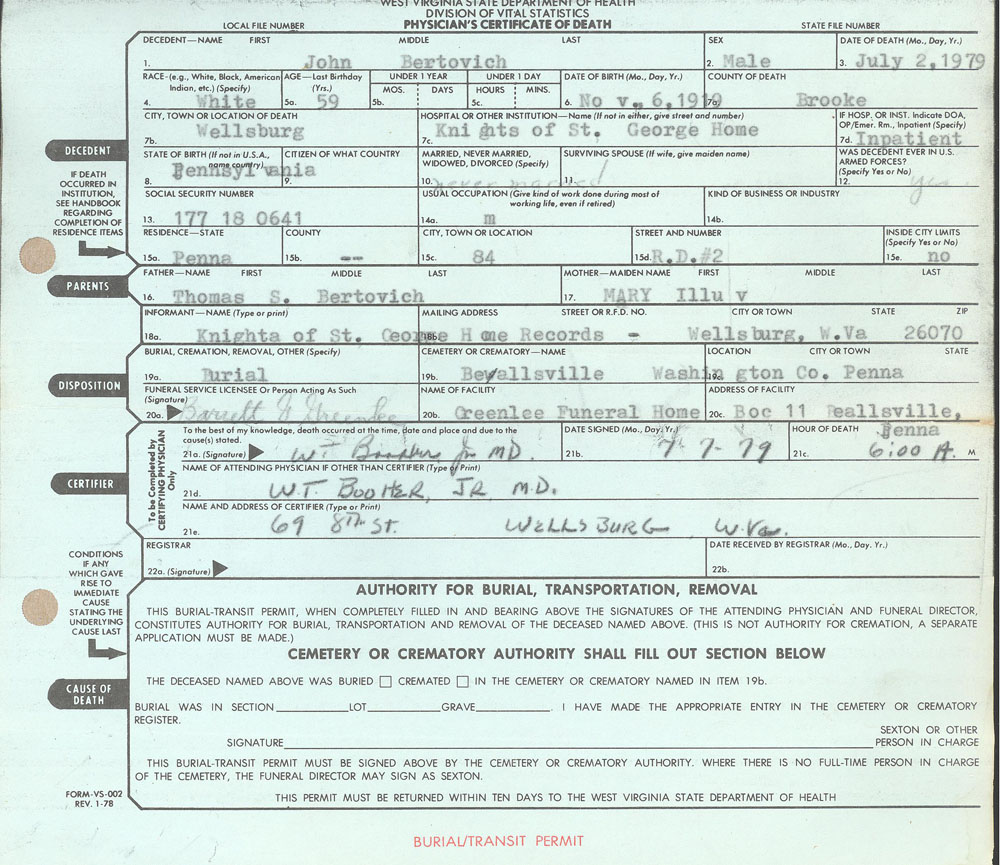 WEST VIRGINIA STATE DEPARTMENT OF HEALTH
DIVISION OF VITAL STATISTICS
LOCAL FILE NUMBER PHYSICIAN'S CERTIFICATE OF DEATH STATE FILE NUMBER
DECEDENT—NAME FIRST MIDDLE LAST SEX DATE OF DEATH (Mo., Day, Yr.)
1. John Bertovich 2. Male 3. July 2,1979
RACE-(e.g., White, Black, American Indian, etc.) (Specify) AGE—Last Birthday (Yrs.) UNDER 1 YEAR UNDER 1 DAY DATE OF BIRTH (Mo., Day, Yr.) COUNTY OF DEATH
MOS. DAYS HOURS MINS.
4. White 5a. 59 5b. 5c. 6. No v. 6,1919 7a. Brooke
CITY, TOWN OR LOCATION OF DEATH HOSPITAL OR OTHER INSTITUTION—Name (If not in either, give street and number) IF HOSP. OR INST. Indicate DOA, OP/Emer. Rm., Inpatient (Specify)
7b. Wellsburg 7c. Knights of St. George Home 7d. Inpatient
DECEDENT
STATE OF BIRTH (If not in U.S.A., name country) CITIZEN OF WHAT COUNTRY MARRIED, NEVER MARRIED, WIDOWED, DIVORCED (Specify) SURVIVING SPOUSE (If wife, give maiden name) WAS DECEDENT EVER IN U.S. ARMED FORCES? (Specify Yes or No)
8. Pennsylvania 9. 10. never married 11. 12. yes
IF DEATH OCCURRED IN INSTITUTION, SEE HANDBOOK REGARDING COMPLETION OF RESIDENCE ITEMS
SOCIAL SECURITY NUMBER USUAL OCCUPATION (Give kind of work done during most of working life, even if retired) KIND OF BUSINESS OR INDUSTRY
13. 177 18 0641 14a. m 14b.
RESIDENCE—STATE COUNTY CITY, TOWN OR LOCATION STREET AND NUMBER INSIDE CITY LIMITS (Specify Yes or No)
15a. Penna 15b. -- 15c. 84 15d. R.D.#2 15e. no
PARENTS
FATHER—NAME FIRST MIDDLE LAST MOTHER—MAIDEN NAME FIRST MIDDLE LAST
16. Thomas S. Bertovich 17. MARY Illu v
INFORMANT—NAME (Type or print) MAILING ADDRESS STREET OR R.F.D. NO. CITY OR TOWN STATE ZIP
18a. Knighta of St. George H ome Records - 18b. Wellsburg, W.Va 26070
DISPOSITION
BURIAL, CREMATION, REMOVAL, OTHER (Specify) CEMETERY OR CREMATORY—NAME LOCATION CITY OR TOWN STATE
19a. Burial 19b. Beallsville 19c. Washin gton Co. Penna
FUNERAL SERVICE LICENSEE Or Person Acting As Such (Signature) NAME OF FACILITY ADDRESS OF FACILITY
20a. Greenlee 20b. Greenlee Funeral Home 20c. Boc 11 Beallsville, Penna
CERTIFIER
To be Completed by CERTIFYING PHYSICIAN Only
To the best of my knowledge, death occurred at the time, date and place and due to the cause(s) stated. DATE SIGNED (Mo., Day, Yr.) HOUR OF DEATH
21a. (Signature) WT Booher Jr MD. 21b. 7-7-79 21c. 6:00 A. M
NAME OF ATTENDING PHYSICIAN IF OTHER THAN CERTIFIER (Type or Print)
21d. W.T. BOOHER, JR M.D.
NAME AND ADDRESS OF CERTIFIER (Type or Print)
21e. 69 8TH ST. WELLSBURG W.Va.
REGISTRAR DATE RECEIVED BY REGISTRAR (Mo., Day. Yr.)
22a. (Signature) 22b.
CONDITIONS IF ANY WHICH GAVE RISE TO IMMEDIATE CAUSE STATING THE UNDERLYING CAUSE LAST
CAUSE OF DEATH
AUTHORITY FOR BURIAL, TRANSPORTATION, REMOVAL
THIS BURIAL-TRANSIT PERMIT, WHEN COMPLETELY FILLED IN AND BEARING ABOVE THE SIGNATURES OF THE ATTENDING PHYSICIAN AND FUNERAL DIRECTOR,
CONSTITUTES AUTHORITY FOR BURIAL, TRANSPORTATION AND REMOVAL OF THE DECEASED NAMED ABOVE. (THIS IS NOT AUTHORITY FOR CREMATION, A SEPARATE
APPLICATION MUST BE MADE.)
CEMETERY OR CREMATORY AUTHORITY SHALL FILL OUT SECTION BELOW
THE DECEASED NAMED ABOVE WAS BURIED ☐ CREMATED ☐ IN THE CEMETERY OR CREMATORY NAMED IN ITEM 19b.
BURIAL WAS IN SECTION____LOT____GRAVE____. I HAVE MADE THE APPROPRIATE ENTRY IN THE CEMETERY OR CREMATORY
REGISTER.
SIGNATURE____ SEXTON OR OTHER PERSON IN CHARGE
THIS BURIAL-TRANSIT PERMIT MUST BE SIGNED ABOVE BY THE CEMETERY OR CREMATORY AUTHORITY. WHERE THERE IS NO FULL-TIME PERSON IN CHARGE
OF THE CEMETERY, THE FUNERAL DIRECTOR MAY SIGN AS SEXTON.
FORM-VS-002
REV. 1-78
THIS PERMIT MUST BE RETURNED WITHIN TEN DAYS TO THE WEST VIRGINIA STATE DEPARTMENT OF HEALTH
BURIAL/TRANSIT PERMIT